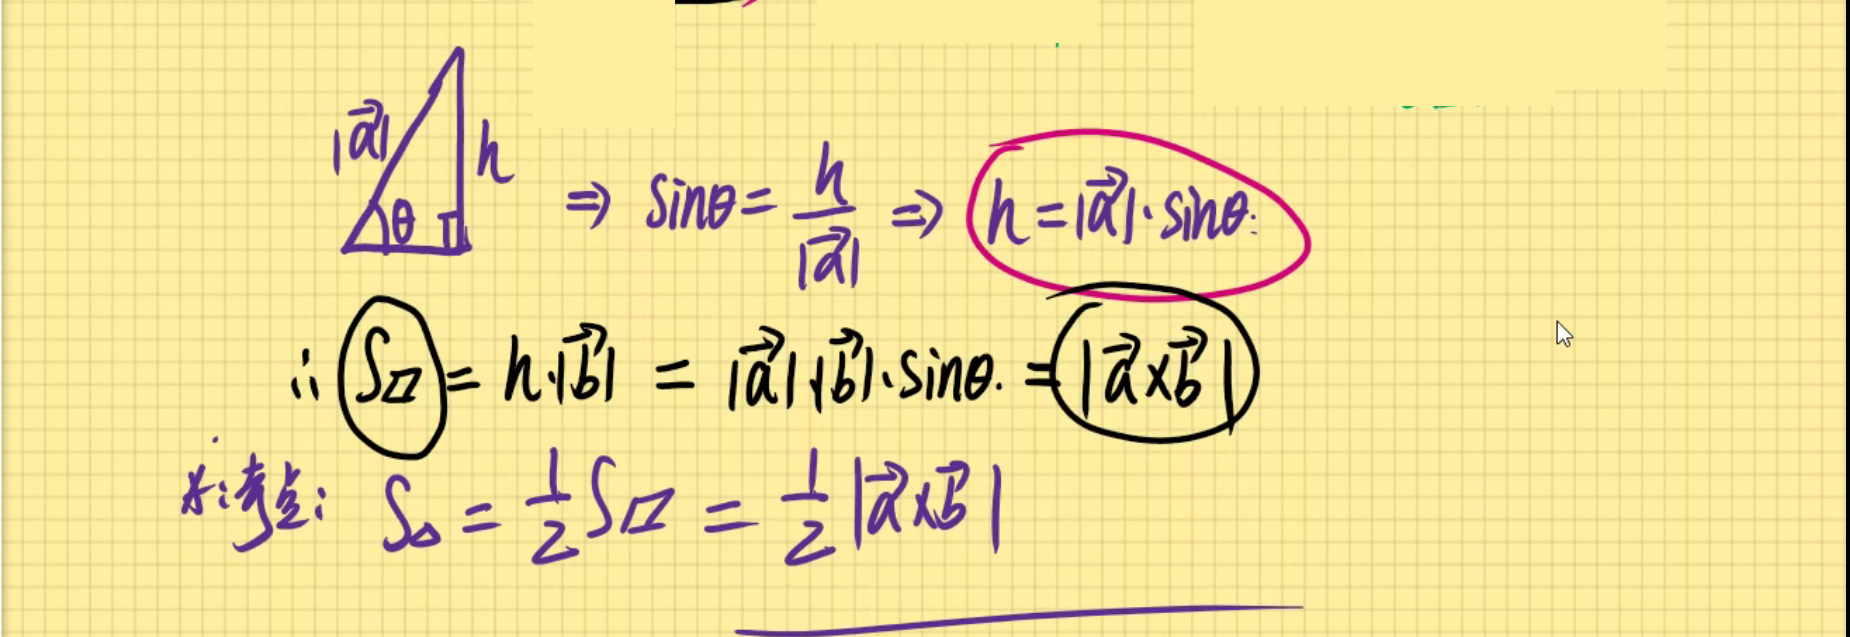 |a⃗| h θ ⇒ sinθ = h/|a⃗| ⇒ h = |a⃗|·sinθ.
∴ S▱ = h·|b⃗| = |a⃗|·|b⃗|·sinθ. = |a⃗×b⃗|
*:考点: S△ = 1/2 S▱ = 1/2 |a⃗×b⃗|